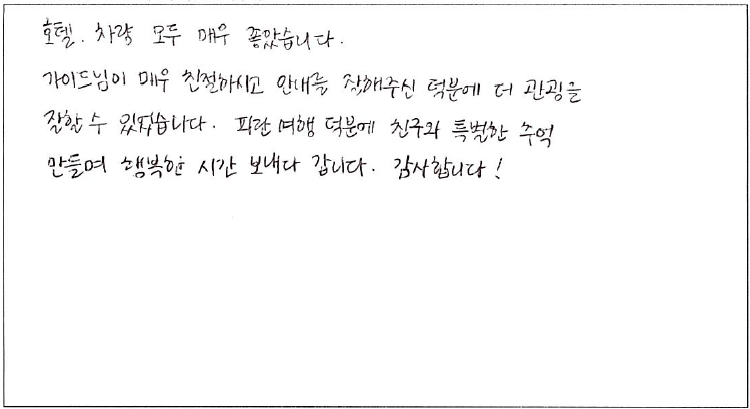 호텔. 차량 모두 매우 좋았습니다.
가이드님이 매우 친절하시고 안내를 잘해주신 덕분에 더 관광을
잘할 수 있었습니다. 파란여행 덕분에 친구와 특별한 추억
만들며 행복한 시간 보내다 갑니다. 감사합니다!